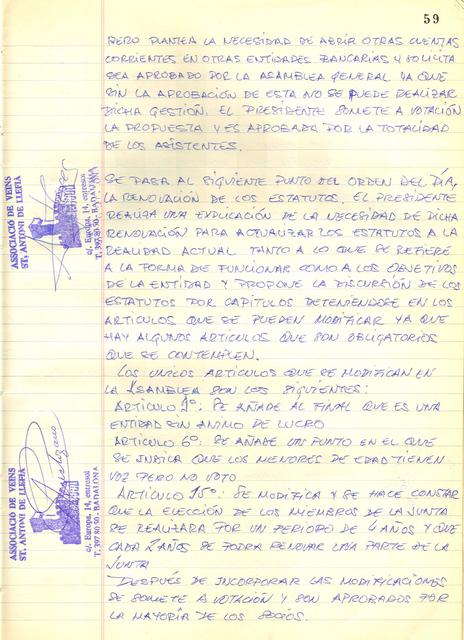 59
PERO PLANTEA LA NECESIDAD DE ABRIR OTRAS CUENTAS
CORRIENTES EN OTRAS ENTIDADES BANCARIAS Y SOLICITA
SEA APROBADO POR LA ASAMBLEA GENERAL YA QUE
SIN LA APROBACIÓN DE ESTA NO SE PUEDE REALIZAR
DICHA GESTIÓN. EL PRESIDENTE SOMETE A VOTACIÓN
LA PROPUESTA Y ES APROBADA POR LA TOTALIDAD
DE LOS ASISTENTES.
SE PASA AL SIGUIENTE PUNTO DEL ORDEN DEL DÍA,
LA RENOVACIÓN DE LOS ESTATUTOS. EL PRESIDENTE
REALIZA UNA EXPLICACIÓN DE LA NECESIDAD DE DICHA
RENOVACIÓN PARA ACTUALIZAR LOS ESTATUTOS A LA
REALIDAD ACTUAL TANTO A LO QUE SE REFIERE
A LA FORMA DE FUNCIONAR COMO A LOS OBJETIVOS
DE LA ENTIDAD Y PROPONE LA DISCURSIÓN DE LOS
ESTATUTOS POR CAPITULOS DETENIENDOSE EN LOS
ARTICULOS QUE SE PUEDEN MODIFICAR YA QUE
HAY ALGUNOS ARTICULOS QUE SON OBLIGATORIOS
QUE SE CONTEMPLEN.
LOS UNICOS ARTICULOS QUE SE MODIFICAN EN
LA ASAMBLEA SON LOS SIGUIENTES:
ARTICULO 1º: SE AÑADE AL FINAL QUE ES UNA
ENTIDAD SIN ANIMO DE LUCRO
ARTICULO 6º: SE AÑADE UN PUNTO EN EL QUE
SE INDICA QUE LOS MENORES DE EDAD TIENEN
VOZ PERO NO VOTO
ARTICULO 15º: SE MODIFICA Y SE HACE CONSTAR
QUE LA ELECCIÓN DE LOS MIEMBROS DE LA JUNTA
SE REALIZARA POR UN PERIODO DE 4 AÑOS Y QUE
CADA 2 AÑOS SE PODRA RENOVAR UNA PARTE DE LA
JUNTA
DESPUÉS DE INCORPORAR LAS MODIFICACIONES
SE SOMETE A VOTACIÓN Y SON APROBADOS POR
LA MAYORÍA DE LOS SOCIOS.
ASSOCIACIO DE VEINS
ST. ANTONI DE LLEFIÀ
c/. Europa, 14, entresol
T. 397 83 50 - BADALONA
ASSOCIACIO DE VEINS
ST. ANTONI DE LLEFIÀ
c/. Europa, 14, entresol
T. 397 83 50 - BADALONA